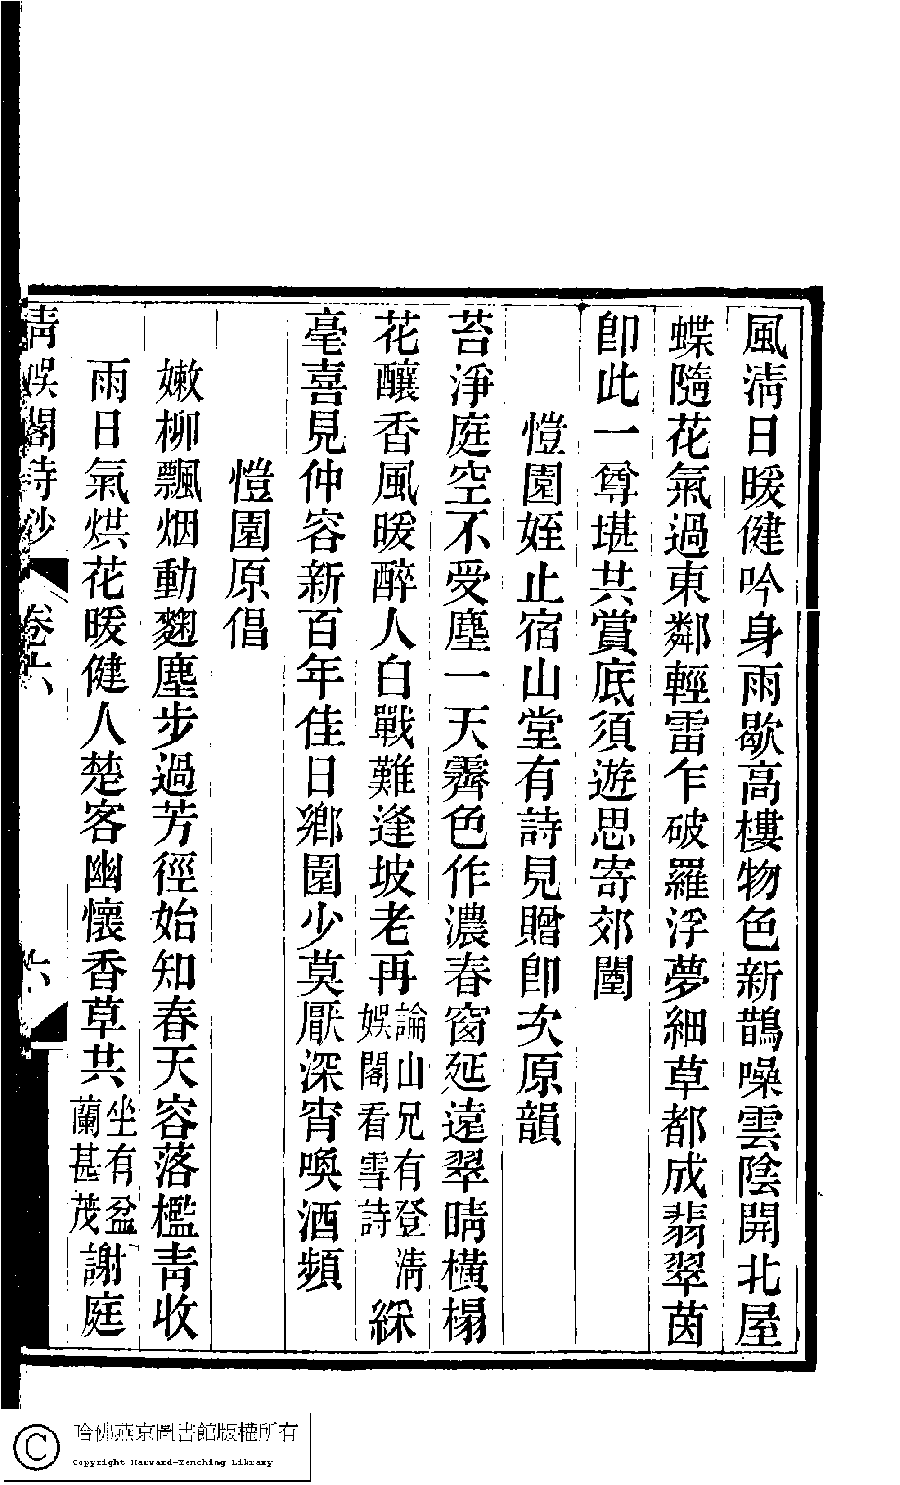 風淸日暖健吟身雨歇高樓物色新鵲噪雲陰開北屋
蝶隨花氣過東鄰輕雷乍破羅浮夢細草都成翡翠茵
卽此一尊堪共賞底須遊思寄郊闉
愷園姪止宿山堂有詩見贈卽次原韻
苔淨庭空不受塵一天霽色作濃春窗延遠翠晴橫榻
花釀香風暖醉人白戰難逢坡老再論山兄有登淸娛閣看雪詩綵
毫喜見仲容新百年佳日鄕園少莫厭深宵喚酒頻
愷園原倡
嫩柳飄烟動麴塵步過芳徑始知春天容落檻靑收
雨日氣烘花暖健人楚客幽懷香草共坐有盆蘭甚茂謝庭
淸娛閣詩鈔
卷六
六
哈佛燕京圖書館版權所有
Copyright Harvard-Yenching Library